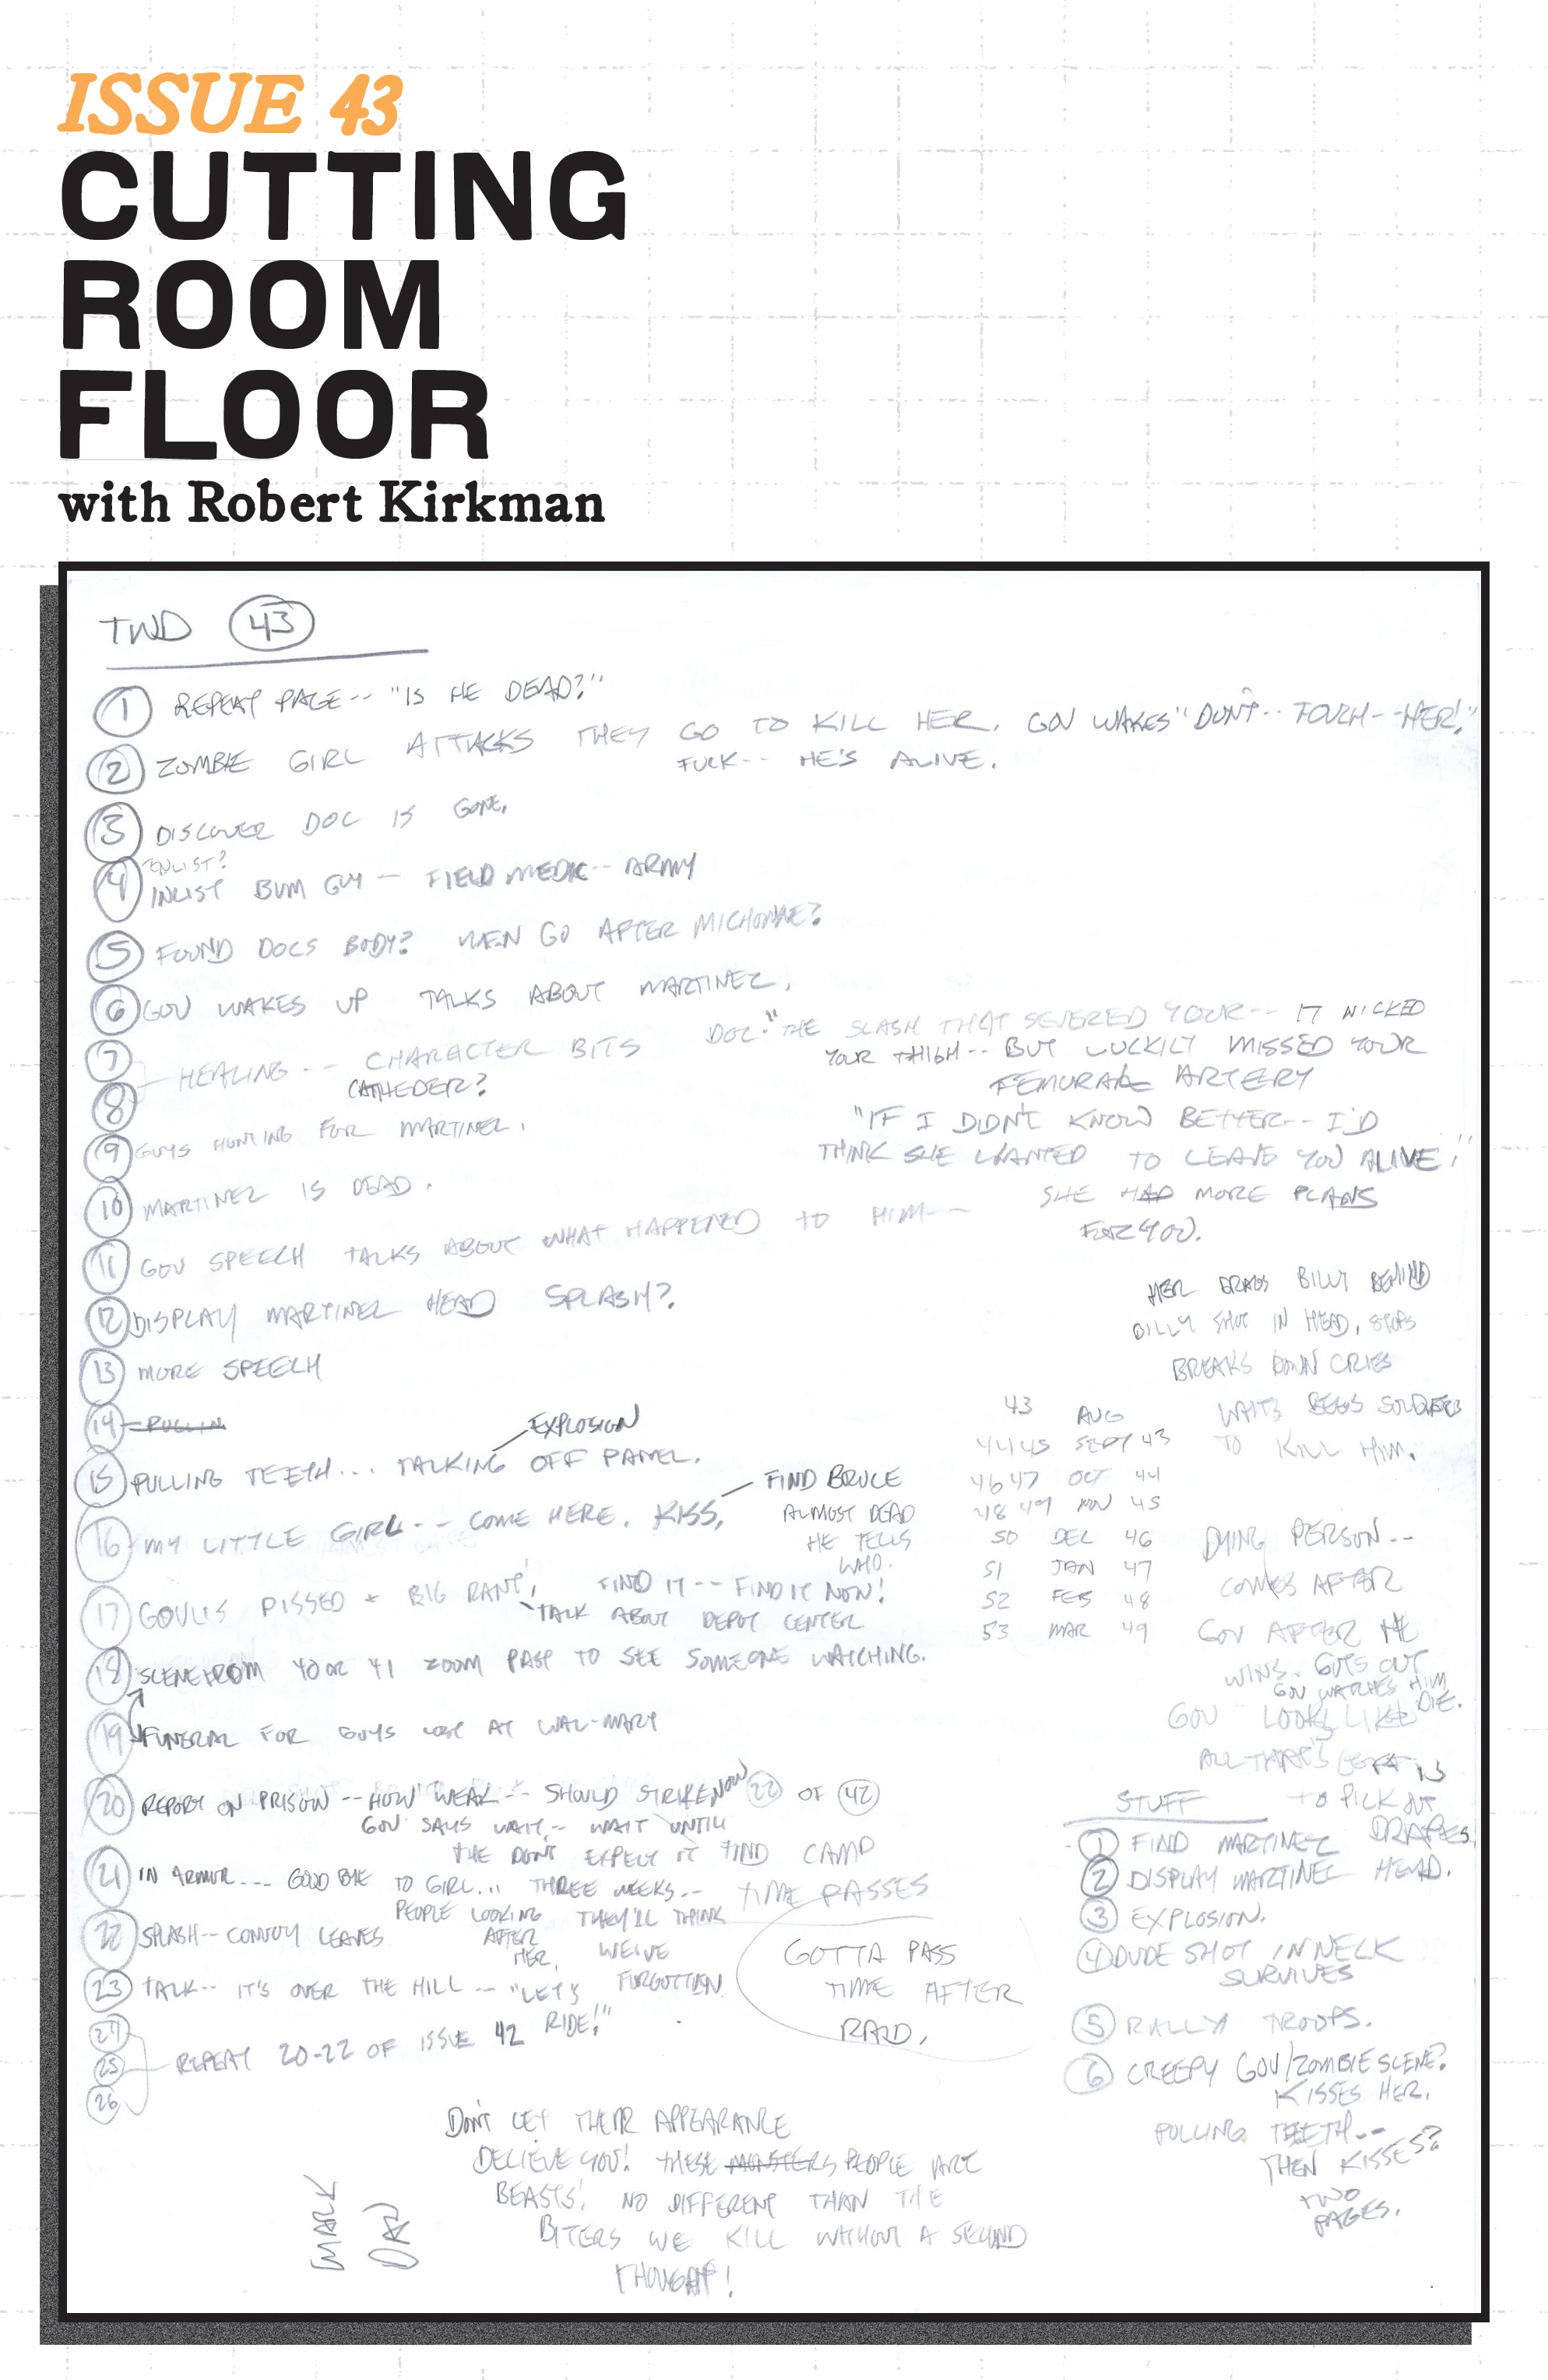 ISSUE 43
CUTTING
ROOM
FLOOR
with Robert Kirkman
TWD 43
1 REPEAT PAGE-- "IS HE DEAD?"
2 ZOMBIE GIRL ATTACKS THEY GO TO KILL HER. GOV WAKES "DON'T-- TOUCH--HER!"
FUCK-- HE'S ALIVE.
3 DISCOVER DOC IS GONE.
ENLIST?
4 INLIST BUM GUY — FIELD MEDIC-- ARMY
5 FOUND DOCS BODY? MEN GO AFTER MICHONNE?
6 GOV WAKES UP TALKS ABOUT MARTINEZ.
7
8
HEALING-- CHARACTER BITS
CATHEDER?
DOC: "THE SLASH THAT SEVERED YOUR-- IT NICKED
YOUR THIGH-- BUT LUCKILY MISSED YOUR
FEMURAL ARTERY
"IF I DIDN'T KNOW BETTER-- I'D
THINK SHE WANTED TO LEAVE YOU ALIVE!"
SHE HAD MORE PLANS
FOR YOU.
9 GUYS HUNTING FOR MARTINEZ.
10 MARTINEZ IS DEAD.
11 GOV SPEECH TALKS ABOUT WHAT HAPPENED TO HIM--
12 DISPLAY MARTINEZ HEAD SPLASH?
13 MORE SPEECH
14 PULLIN
EXPLOSION
15 PULLING TEETH... TALKING OFF PANEL.
16 MY LITTLE GIRL-- COME HERE. KISS.
FIND BRUCE
ALMOST DEAD
HE TELLS
WHO.
17 GOV IS PISSED + BIG RANT! FIND IT-- FIND IT NOW!
TALK ABOUT DEPOT CENTER
18 SCENE FROM 40 OR 41 ZOOM PAST TO SEE SOMEONE WATCHING.
19 FUNERAL FOR GUYS LOST AT WAL-MART
20 REPORT ON PRISON-- HOW WEAK-- SHOULD STRIKE NOW 22 OF 42
GOV SAYS WAIT-- WAIT UNTIL
THE DON'T EXPECT IT FIND CAMP
21 IN ARMOR--- GOOD BYE TO GIRL... THREE WEEKS--
PEOPLE LOOKING AFTER HER.
THEY'LL THINK
WE'VE
FORGOTTEN
TIME PASSES
22 SPLASH-- CONVOY LEAVES
23 TALK-- IT'S OVER THE HILL-- "LET'S
RIDE!"
24
25
26
REPEAT 20-22 OF ISSUE 42
GOTTA PASS
TIME AFTER
RAID.
HER DRAGS BILLY BEHIND
BILLY SHOT IN HEAD, STOPS
BREAKS DOWN CRIES
WAITS BEGS SOLDIERS
TO KILL HIM.
43 AUG
44 45 SEPT 43
46 47 OCT 44
48 49 NOV 45
50 DEC 46
51 JAN 47
52 FEB 48
53 MAR 49
DYING PERSON--
COMES AFTER
GOV AFTER HE
WINS. GUTS OUT
GOV WATCHES HIM
DIE.
GOV LOOKS LIKE
ALL THAT'S LEFT IS
TO PICK OUT
DRAPES.
STUFF
1 FIND MARTINEZ
2 DISPLAY MARTINEZ HEAD.
3 EXPLOSION.
4 DUDE SHOT IN NECK
SURVIVES
5 RALLY TROOPS.
6 CREEPY GOV/ZOMBIE SCENE?
KISSES HER.
PULLING TEETH--
THEN KISSES?
TWO
PAGES.
DON'T LET THEIR APPEARANCE
DECIEVE YOU! THESE MONSTERS PEOPLE ARE
BEASTS! NO DIFFERENT THAN THE
BITERS WE KILL WITHOUT A SECOND
THOUGHT!
MARK